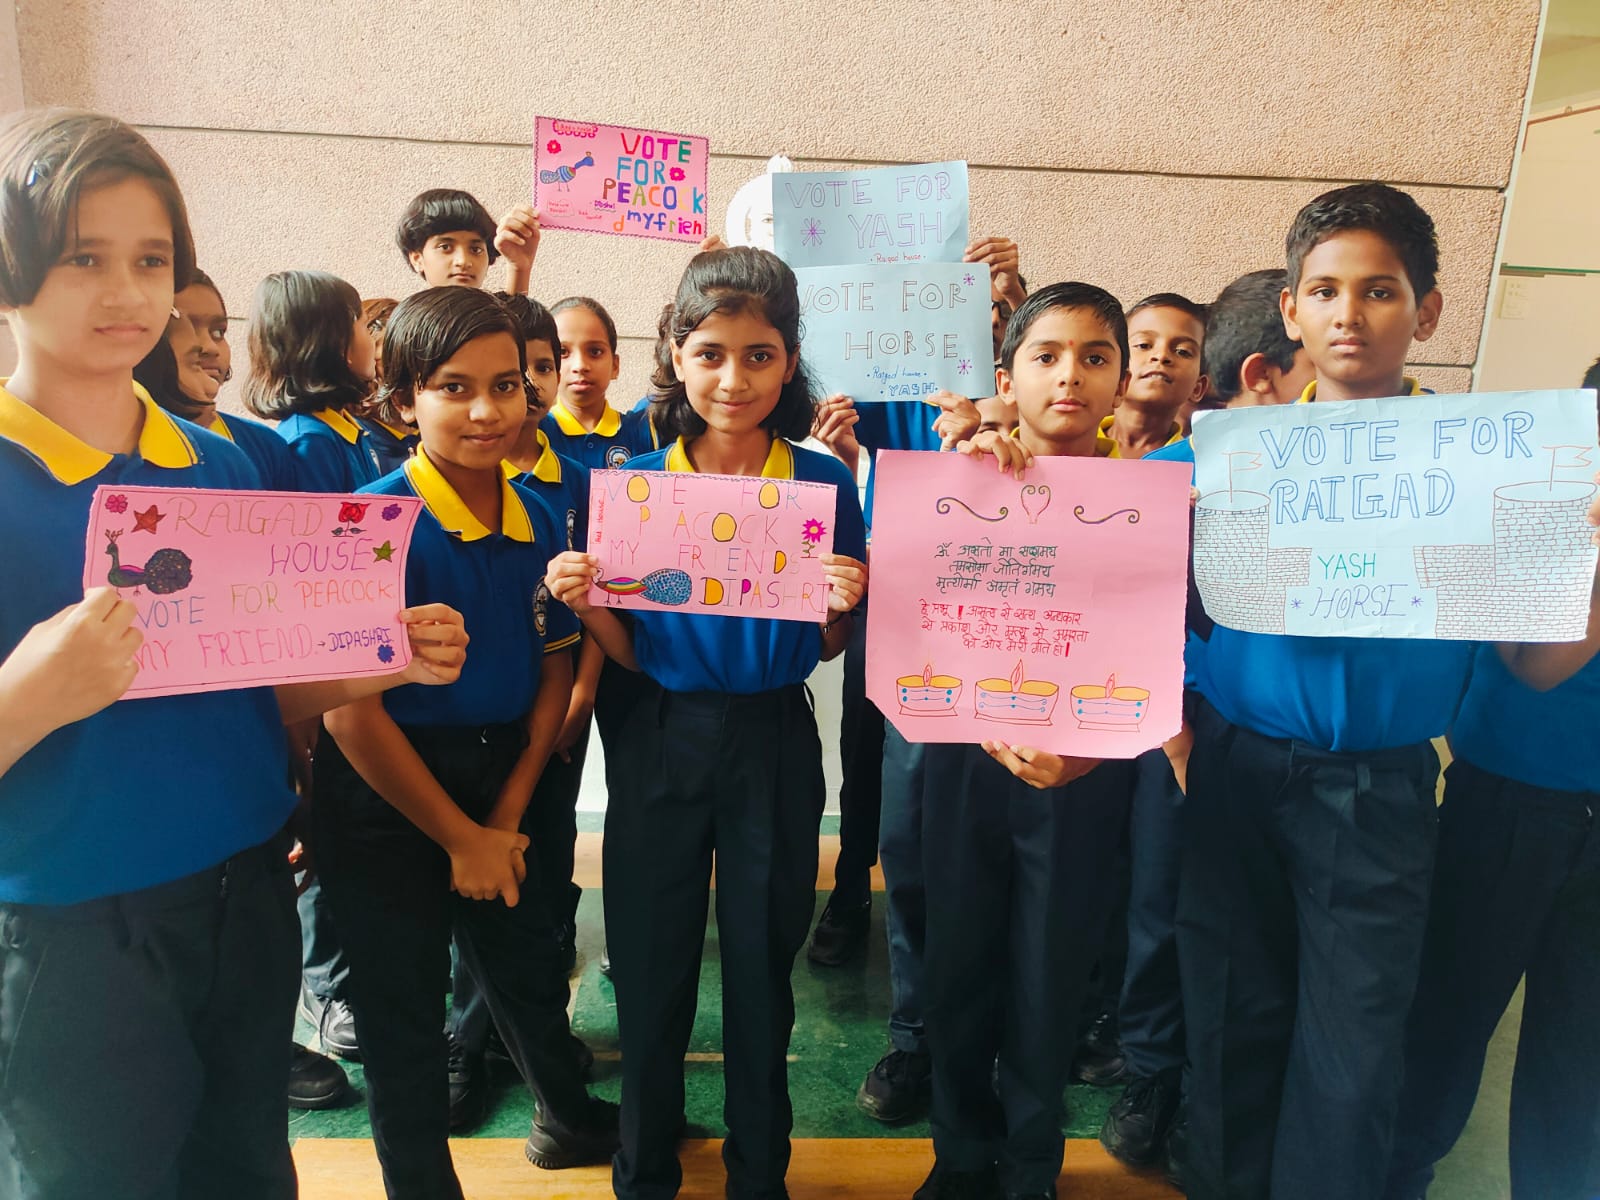 VOTE
FOR
PEACOCK
Dipashri
my frien
d
VOTE FOR
YASH
Raigad house
VOTE FOR
HORSE
Raigad house
YASH
RAIGAD
HOUSE
VOTE FOR PEACOCK
MY FRIEND → DIPASHRI
VOTE FOR
PEACOCK
MY FRIENDS
DIPASHRI
Red House
ॐ असतो मा सद्गमय
तमसोमा ज्योतिर्गमय
मृत्योर्मा अमृतं गमय
हे प्रभू ! असत्य से सत्य अन्धकार
से प्रकाश और मृत्यु से अमरता
की ओर मेरी गति हो।
VOTE FOR
RAIGAD
YASH
HORSE